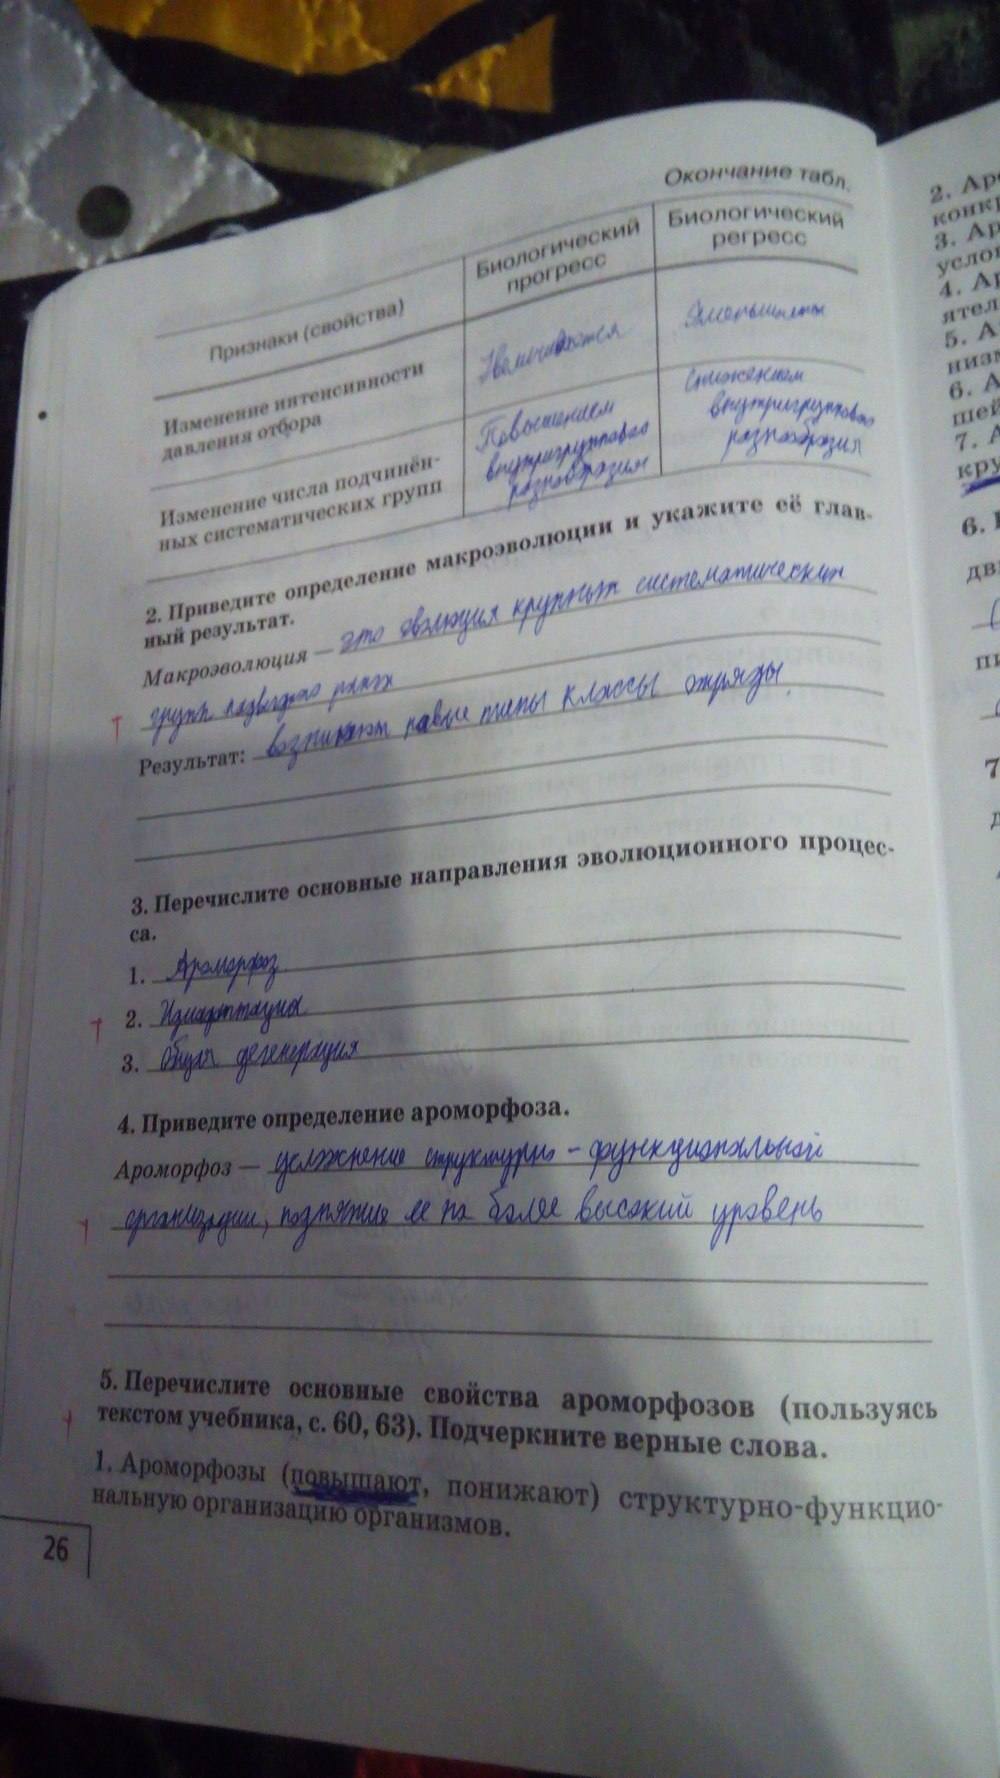 Окончание табл.
Признаки (свойства)
Биологический
прогресс
Биологический
регресс
Изменение интенсивности
давления отбора
Изменение числа подчинён-
ных систематических групп
Повышением
внутригруппового
снижением
внутригруппового
разнообразия
2. Приведите определение макроэволюции и укажите её глав-
ный результат.
Макроэволюция — это эволюция крупных систематических
групп
Результат: возникают новые типы классы отряды
3. Перечислите основные направления эволюционного процес-
са.
1. Ароморфоз
2. Идиоадаптация
3. Общая дегенерация
4. Приведите определение ароморфоза.
Ароморфоз — усложнение структурно - функциональной
организации, поднятие ее на более высокий уровень
5. Перечислите основные свойства ароморфозов (пользуясь
текстом учебника, с. 60, 63). Подчеркните верные слова.
1. Ароморфозы (повышают, понижают) структурно-функцио-
нальную организацию организмов.
26
2.
3.
4.
5.
6.
7.
6.
7